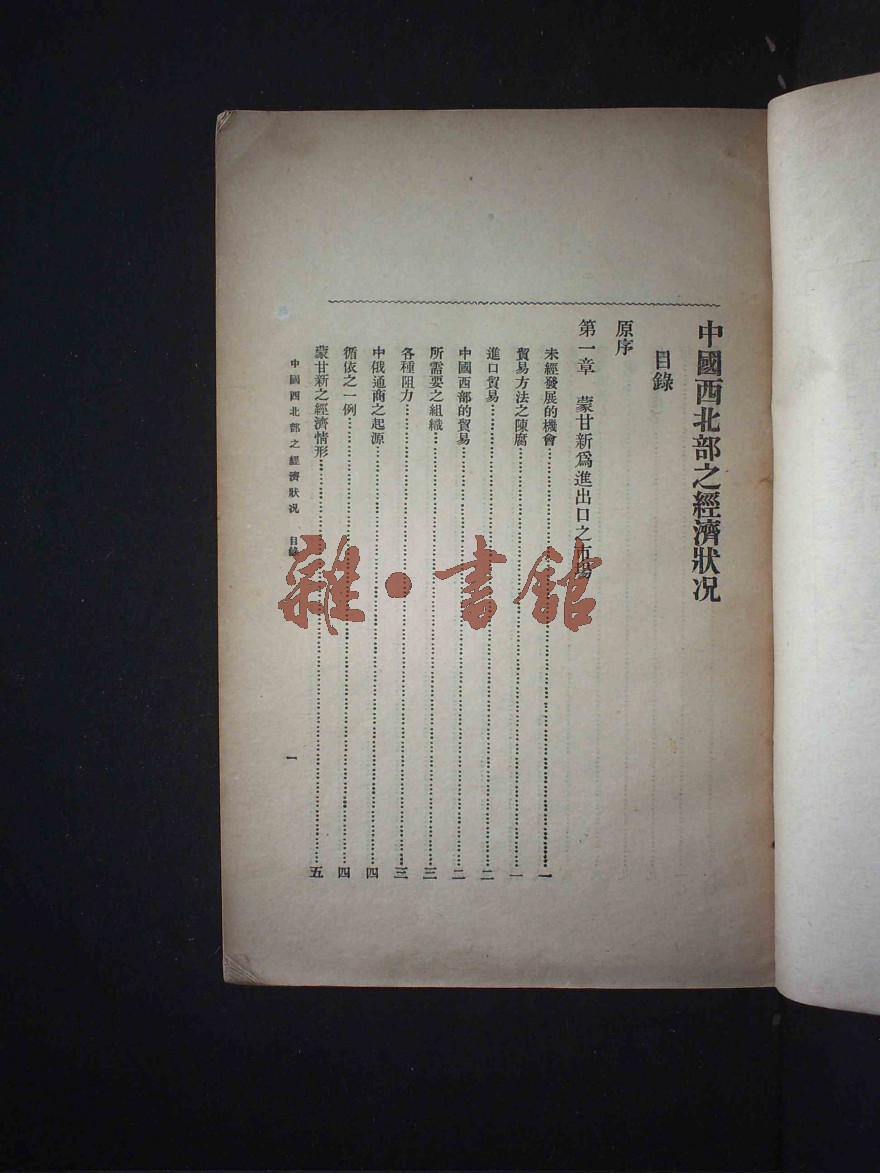 中國西北部之經濟狀況
目錄
原序
第一章　蒙甘新爲進出口之市場
未經發展的機會…………一
貿易方法之陳腐…………一
進口貿易…………二
中國西部的貿易…………二
所需要之組織…………三
各種阻力…………三
中俄通商之起源…………四
循依之一例…………四
蒙甘新之經濟情形…………五
中國西北部之經濟狀況　目錄
一
雜·書館